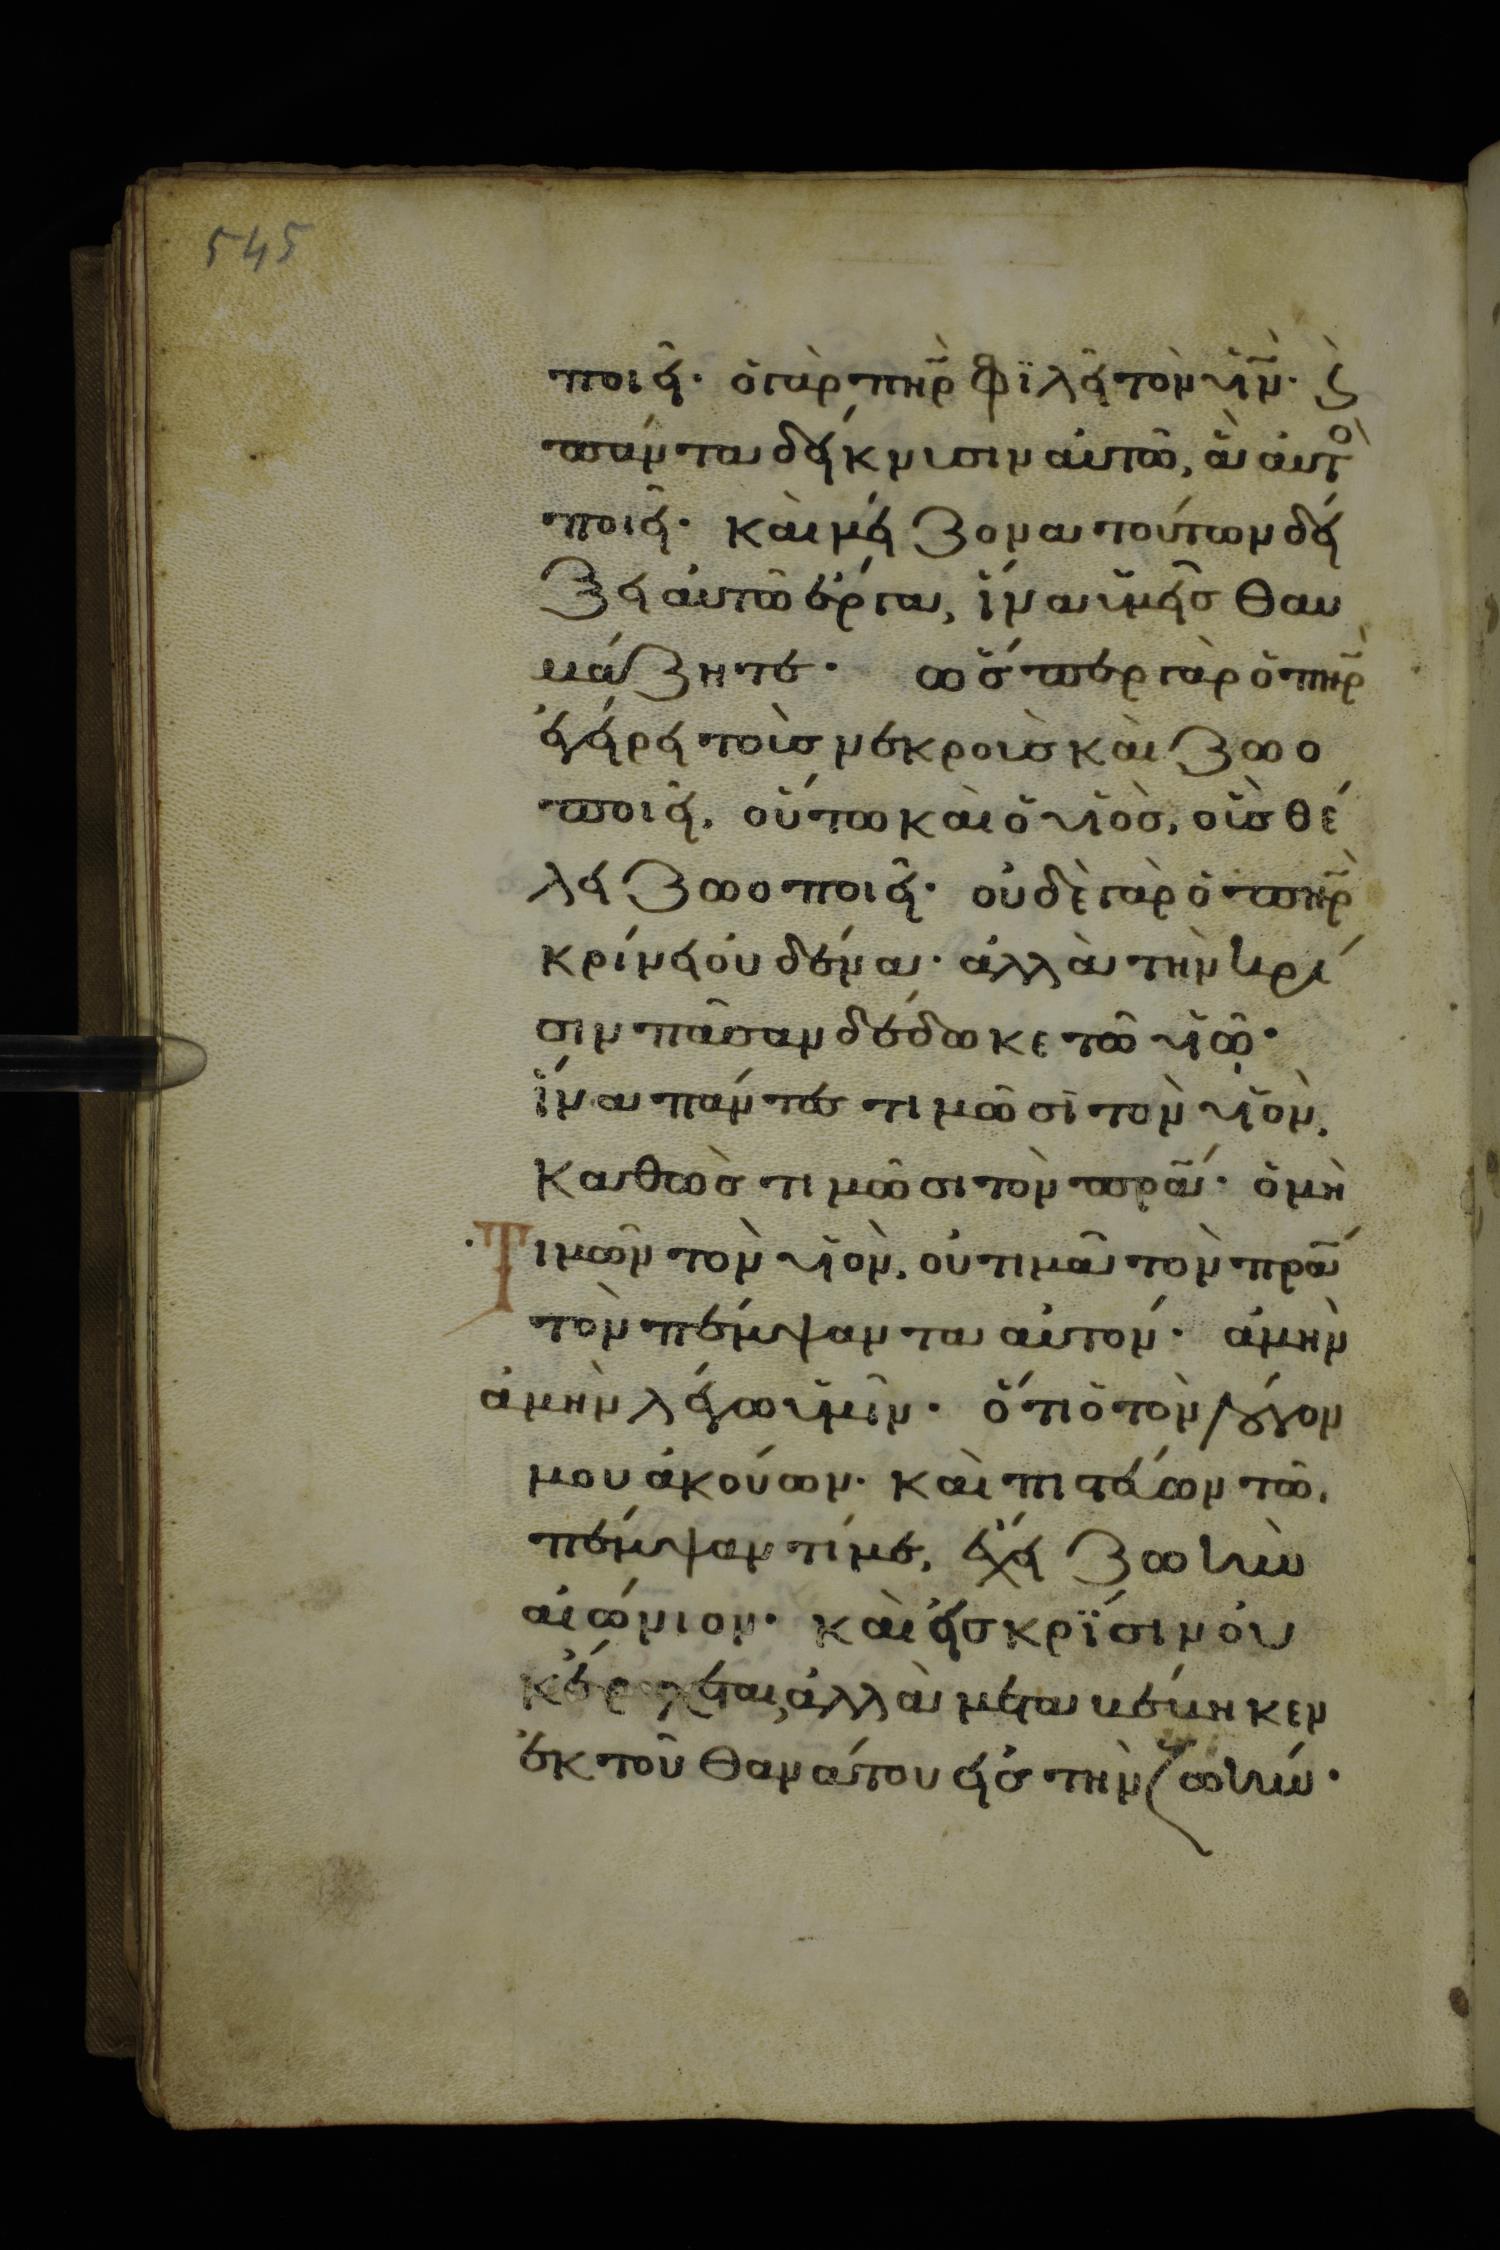 545
ποιεῖ· ὁ γὰρ πηρ̃ φϊλεῖ τὸν υἱν̃· ϛ̀
πάντα δείκνυσιν αὐτῶ, ἃ αὐτὸ
ποιεῖ· καὶ μείζονα τούτων δεί
ξει αὐτῶ ἔργα, ἵνα ὑμεῖς θαυ
μάζητε· ὥσπερ γὰρ ὁ πηρ̃
ἐγείρει τοὺς νεκροὺς καὶ ζωο
ποιεῖ, οὕτω καὶ ὁ υἱὸς, οὓς θέ
λει ζωοποιεῖ· οὐδὲ γὰρ ὁ πηρ̃
κρίνει οὐδένα· ἀλλὰ τὴν κρί
σιν πᾶσαν δέδωκε τῶ υἱῶ·
ἵνα πάντες τιμῶσὶ τὸν υἱὸν,
καθὼς τιμῶσι τὸν πρα̃· ὁ μὴ
Τιμῶν τὸν υἱὸν, οὐ τιμᾶ τὸν πρα̃
τὸν πέμψαντα αὐτόν· ἀμὴν
ἀμὴν λέγω ὑμῖν· ὅτι ὁ τὸν λόγον
μου ἀκούων· καὶ πιστεύων τῶ,
πέμψαντί με, ἔχει ζωὴν
αἰώνιον· καὶ εἰς κρϊσιν οὐ
κ ἔρχεται, ἀλλὰ μεταβέβηκεν
ἐκ τοῦ θανάτου εἰς τὴν ζωήν·